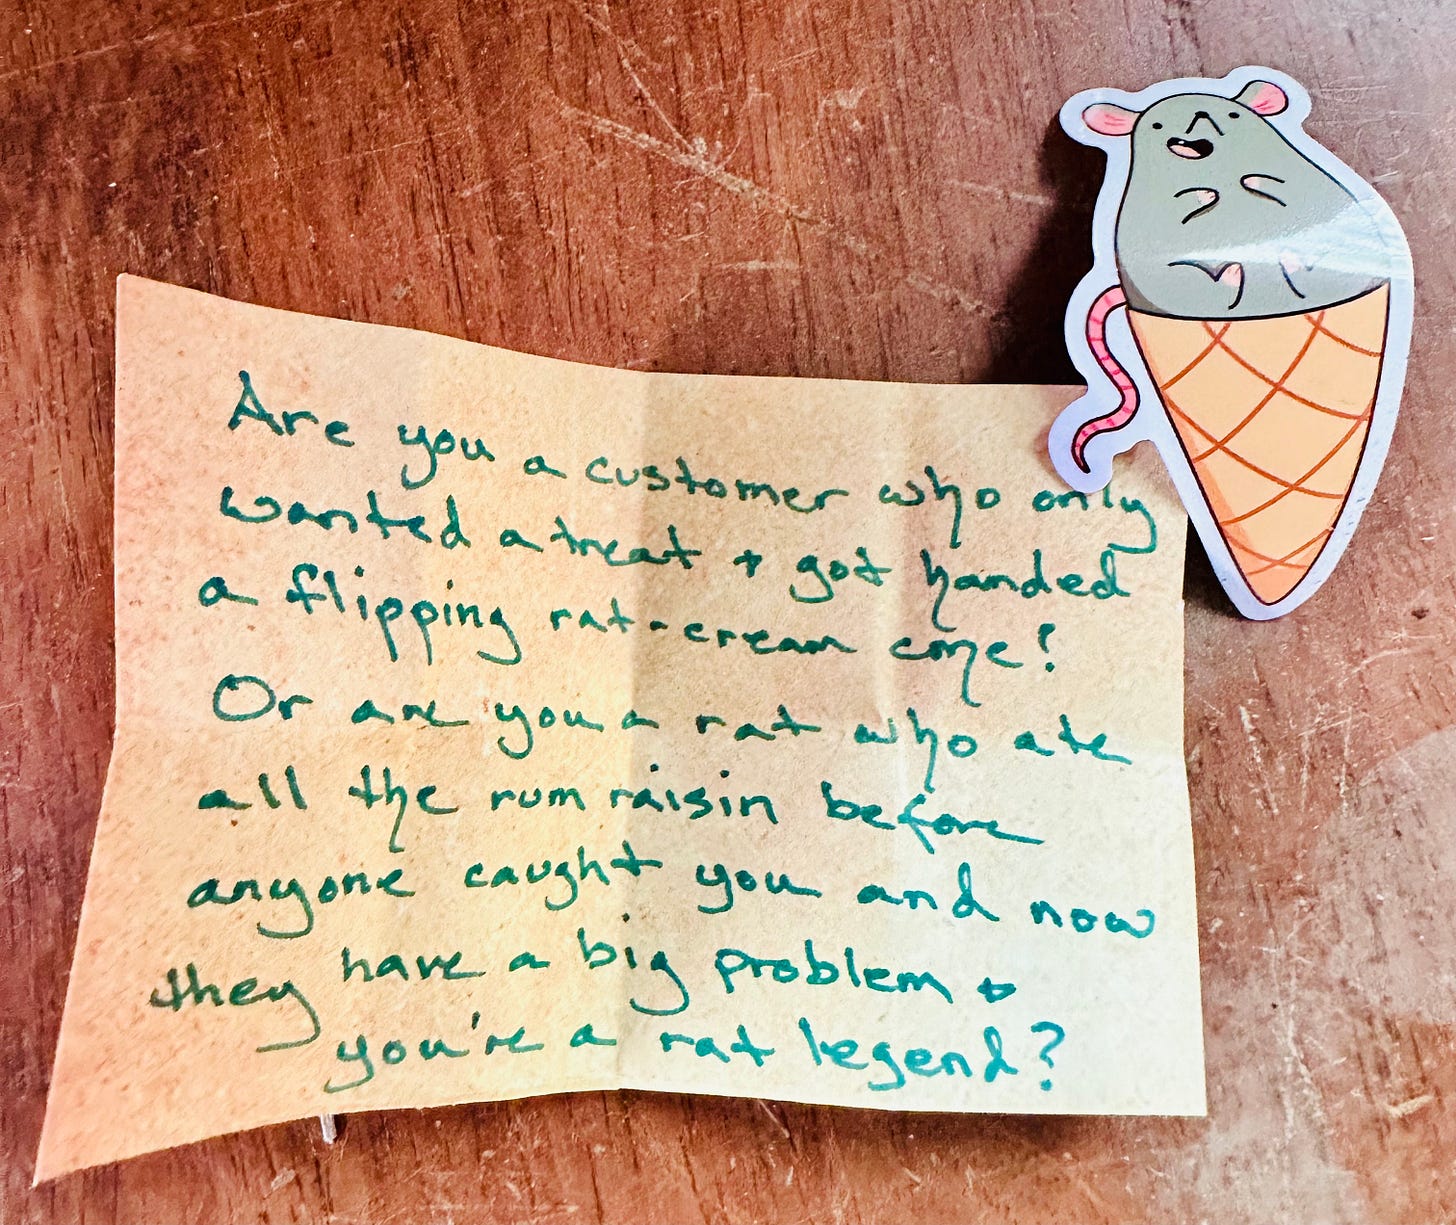 Are you a customer who only
wanted a treat + got handed
a flipping rat-cream cone!
Or are you a rat who ate
all the rum raisin before
anyone caught you and now
they have a big problem +
you're a rat legend?